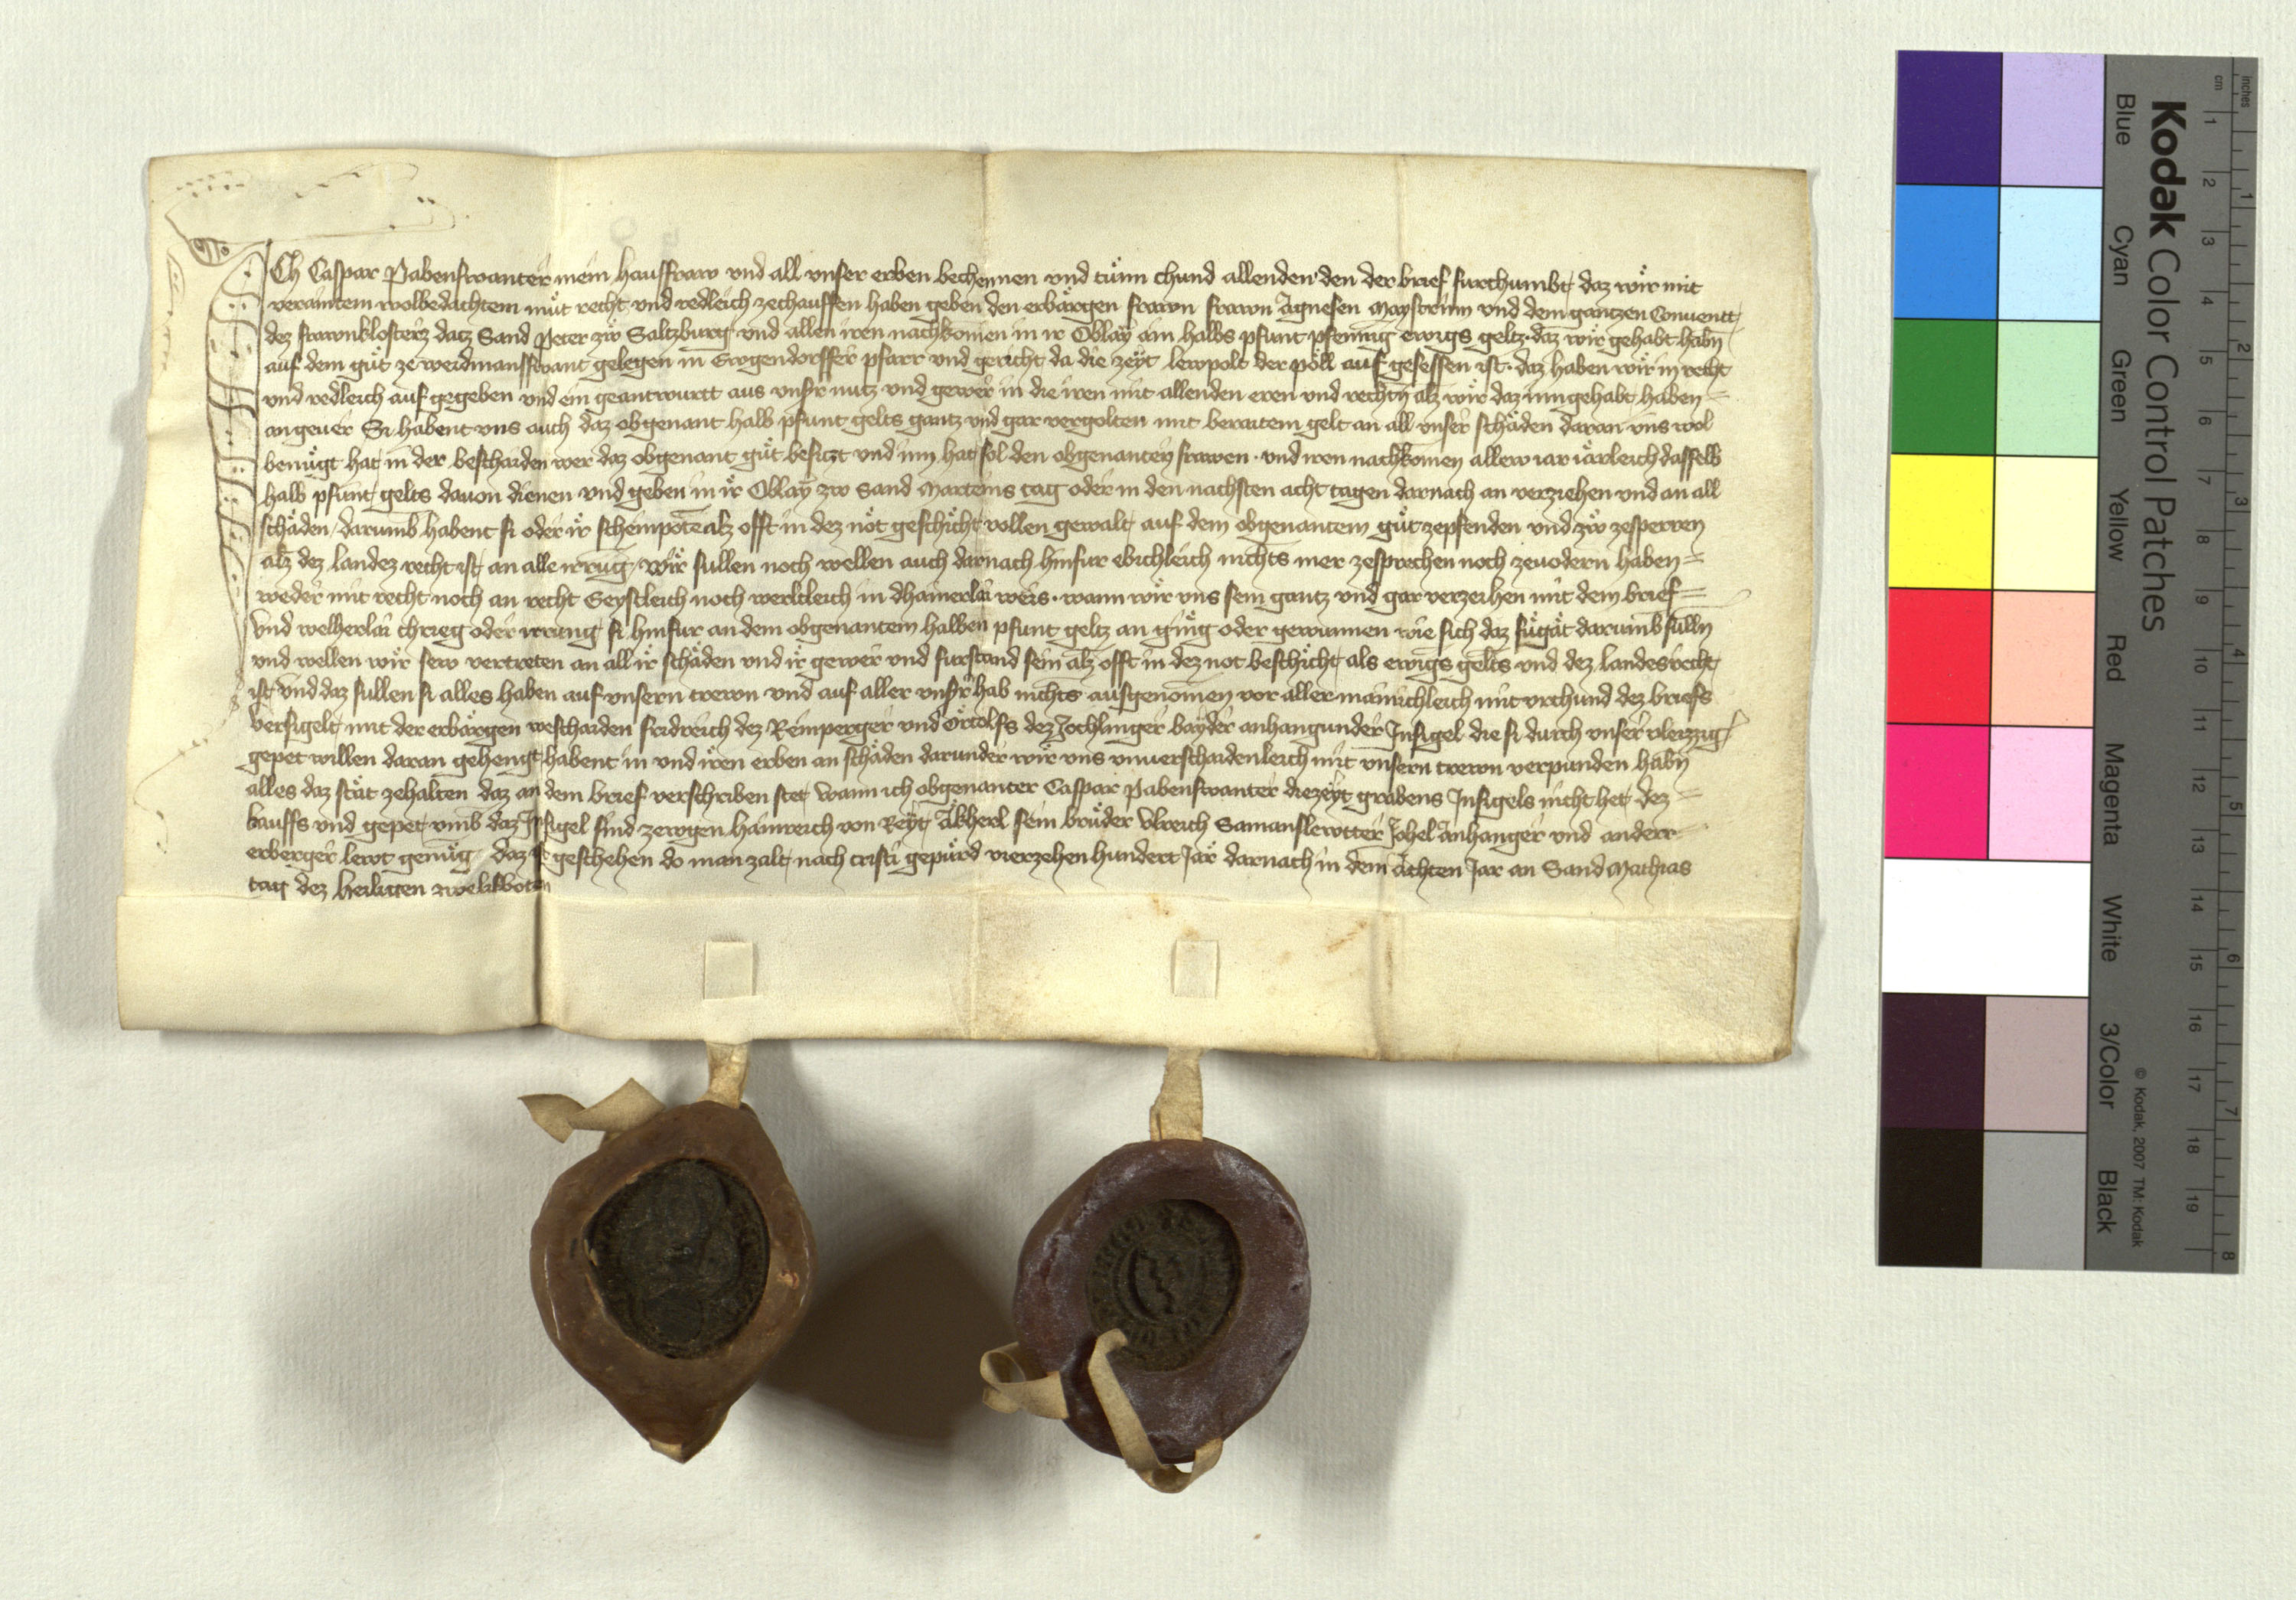 Ich Caspar Pabenswanter mein hausfraw vnd all vnser erben bechennen vnd tůnn chund allenden den der brief furchumbt daz wir mit
veraintem wolbedachtem můt recht vnd redleich zechauffen haben geben den erbärgen frawn frawn Agnesen Maystrinn vnd dem gantzen Conuentt
dez frawnklosterz datz Sand Peter zw Saltzburg vnd allen iren nachkomen in ir Oblay ain halbs pfunt pfennig ewigs geltz daz wir gehabt habn
auf dem gůt ze weidmanswant gelegen in Eugendorffer pfarr vnd gericht da die zeyt lewpolt der pöll auf gesessen ist daz haben wir in recht
vnd redleich auf gegeben vnd ein geantwurtt aus vnsr nutz vnd gewer in die iren mit allenden eren vnd rechtn alz wir daz inngehabt haben
angeuer Si habent vns auch daz obgenant halb pfunt gelts gantz vnd gar vergolten mit beraitem gelt an all vnser schäden daran vns wol
benůgt hat in der beschaiden wer daz obgenant gůt besitzt vnd inn hat sol den obgenanten frawen vnd iren nachkomen allew iar iärleich dasselb
halb pfunt gelts dauon dienen vnd geben in ir Oblay zw Sand Marteins tag oder in den nachsten acht tagen darnach an verziehen vnd an all
schäden darumb habent si oder ir scheinpote alz offt in dez nöt geschicht vollen gewalt auf dem obgenantem gůt zepfenden vnd zw zesperren
alz dez landez recht ist an alle irrung wir sullen noch wellen auch darnach hinfur ebichleich nichts mer zesprechen noch zeuodern haben
weder mit recht noch an recht Geystleich noch werltleich in dhainerlai weis wann wir vns sein gantz vnd gar verzeihen mit dem brief
Vnd welherlai chrieg oder irrung si hinfur an dem obgenantem halben pfunt geltz an ging oder gewunnen wie sich daz fůgät darumb sulln
vnd wellen wir sew vertreten an all ir schäden vnd ir gewer vnd furstand sein alz offt in dez not beschicht als ewigs gelts vnd dez landes recht
ist vnd daz sullen si alles haben auf vnsern trewn vnd auf aller vnsr hab nichts ausgenomen vor aller mäinichleich mit vrchund dez briefs
Versigelt mit der erbärgen weschaiden fridreich dez Remperger vnd Örtolfs dez Zochlinger bayder anhangunder Insigel die si durch vnser vleizzig
gepet willen daran gehengt habent in vnd iren erben an schäden darunder wir vns vnuerschaidenleich mit vnsern trewn verpunden habn
alles daz stät zehalten daz an dem brief verschriben stet Wann ich obgenanter Caspar Pabenswanter die zeyt grabens Insigels nicht het dez
kauffs vnd gepet vmb daz Insigel sind zewgen Hainreich von Reyt Äkherl sein brůder Vlreich Samanslewtter Johel Anhanger vnd anderr
erberger lewt genůg daz ist geschehen do man zalt nach cristi gepůrd vierzehen hundert Jar darnach in dem Achten Jar an Sand Mathias
tag dez heiligen zwelifboten
Kodak Color Control Patches
Blue Cyan Green Yellow Red Magenta White 3/Color Black
© Kodak, 2007 TM: Kodak
inches 1 2 3 4 5 6 7 8
cm 1 2 3 4 5 6 7 8 9 10 11 12 13 14 15 16 17 18 19